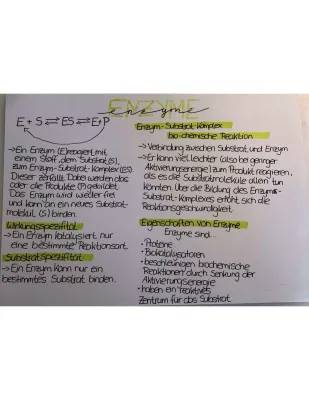 ENZYME
enzyme
E + S ⇌ ES ⇌ E+P
→ Ein Enzym (E) reagiert mit
einem Stoff, dem Substrat (S),
zum Enzym-Substrat-Komplex (ES).
Dieser zerfällt. Dabei werden das
oder die Produkte (P) gebildet.
Das Enzym wird wieder frei
und kann an ein neues Substrat-
molekül (S) binden.
Wirkungsspezifität
→ Ein Enzym katalysiert nur
eine bestimmte Reaktionsart.
Substratspezifität
→ Ein Enzym kann nur ein
bestimmtes Substrat binden.
Enzym-Substrat Komplex
bio-chemische Reaktion
→ Verbindung zwischen Substrat und Enzym
→ Er kann viel leichter (also bei geringer
Aktivierungsenergie) zum Produkt reagieren,
als es die Substratmoleküle allein tun
könnten. Über die Bildung des Enzym-
Substrat-Komplexes erhöht sich die
Reaktionsgeschwindigkeit.
Eigenschaften von Enzyme
Enzyme sind...
• Proteine
• Biokatalysatoren
• beschleunigen biochemische
Reaktionen durch Senkung der
Aktivierungsenergie
• haben ein reaktives
Zentrum für das Substrat